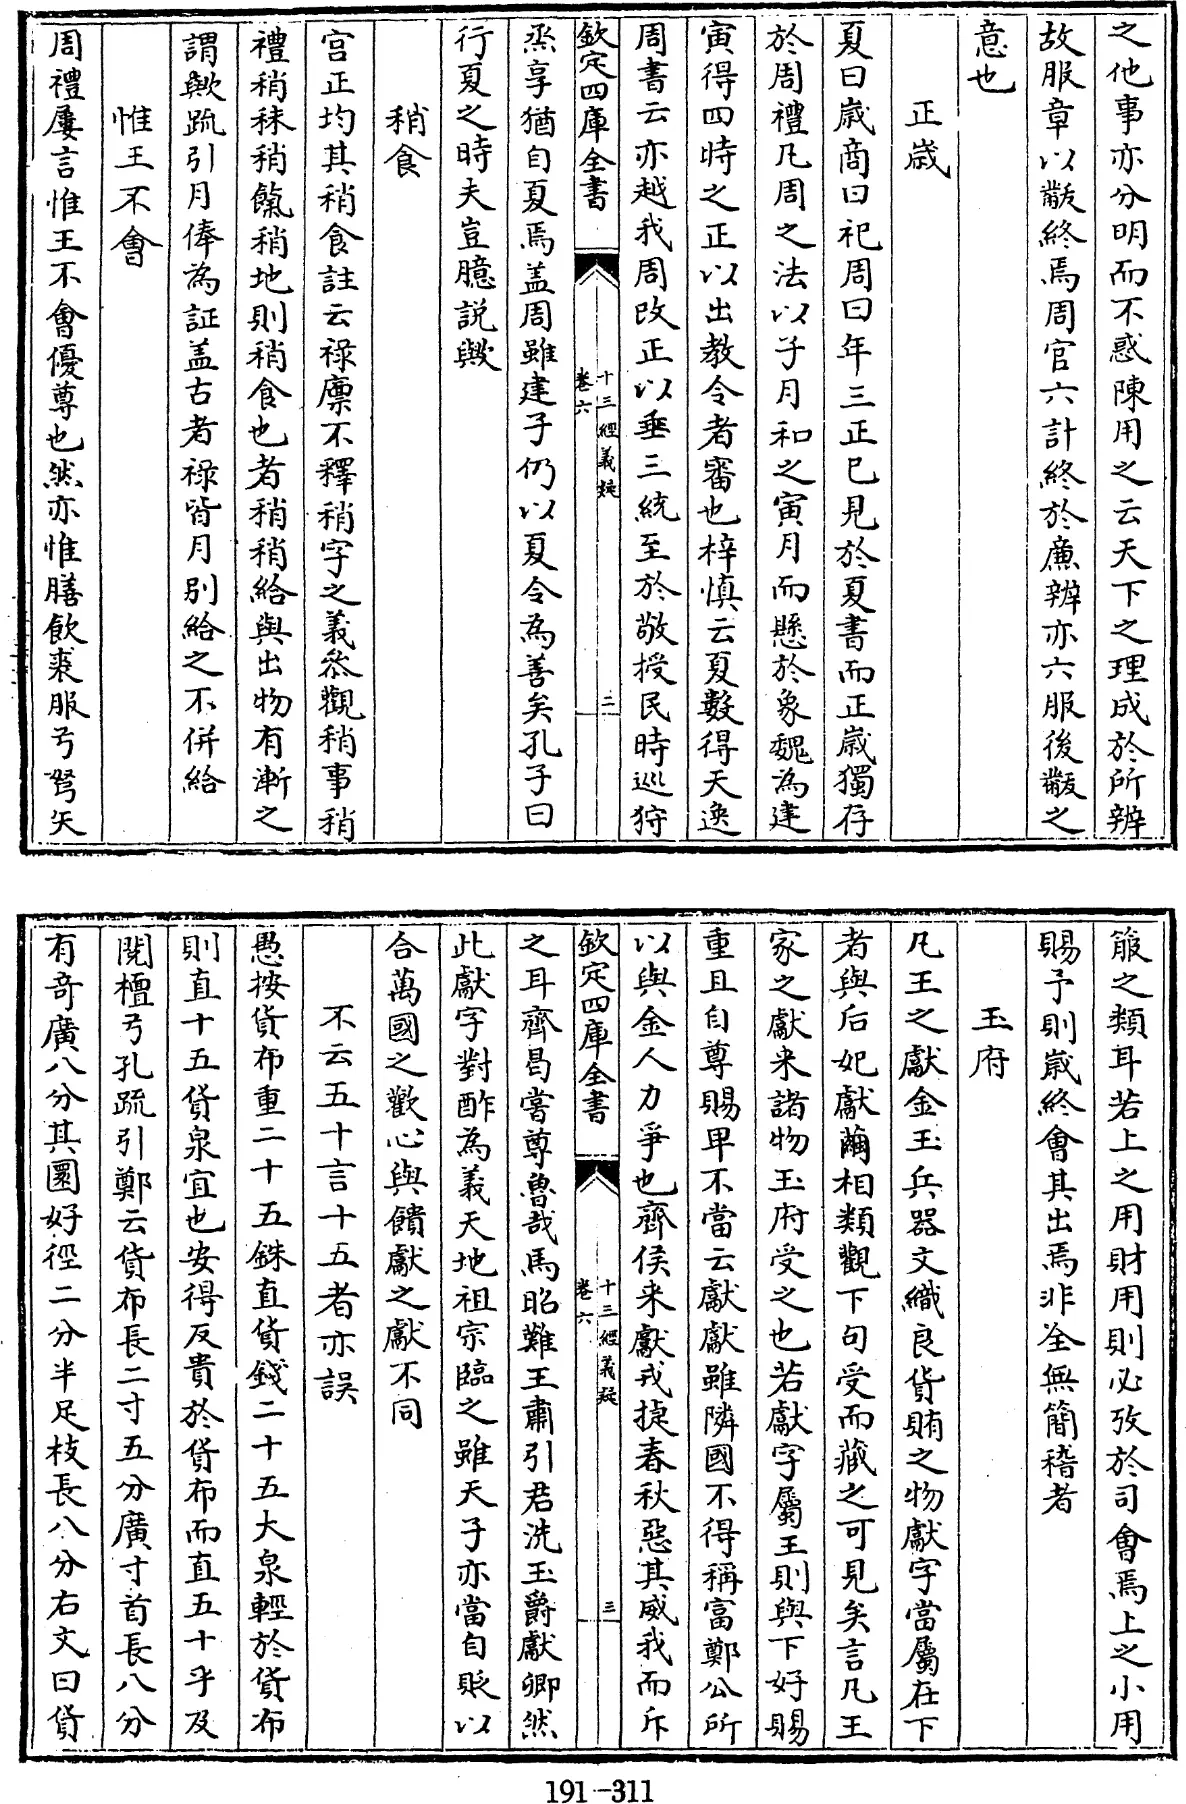 之他事亦分明而不惑陳用之云天下之理成於所辨
故服章以黻終焉周官六計終於㢘辨亦六服後黻之
意也
正歲
夏曰歲商曰祀周曰年三正已見於夏書而正歲獨存
於周禮凡周之法以子月和之寅月而懸於象魏為建
寅得四時之正以出教令者審也梓慎云夏數得天逸
周書云亦越我周改正以垂三統至於敬授民時巡狩
欽定四庫全書
十三經義疑
卷六
二
烝享猶自夏焉盖周雖建子仍以夏令為善矣孔子曰
行夏之時夫豈臆説歟
稍食
宫正均其稍食註云祿廪不釋稍字之義叅觀稍事稍
禮稍秣稍餼稍地則稍食也者稍稍給與出物有漸之
謂歟疏引月俸為証盖古者祿皆月別給之不併給
惟王不會
周禮屢言惟王不會優尊也然亦惟膳飲裘服弓弩矢
箙之類耳若上之用財用則必攷於司會焉上之小用
賜予則歲終會其出焉非全無簡稽者
玉府
凡王之獻金玉兵器文織良貨賄之物獻字當屬在下
者與后妃獻繭相類觀下句受而藏之可見矣言凡王
家之獻来諸物玉府受之也若獻字屬王則與下好賜
重且自尊賜卑不當云獻獻雖隣國不得稱富鄭公所
以與金人力爭也齊侯来獻戎捷春秋惡其威我而斥
欽定四庫全書
十三經義疑
卷六
三
之耳齊曷嘗尊魯哉馬昭難王肅引君洗玉爵獻卿然
此獻字對酢為義天地祖宗臨之雖天子亦當自貶以
合萬國之歡心與饋獻之獻不同
不云五十言十五者亦誤
愚按貨布重二十五銖直貨錢二十五大泉輕於貨布
則直十五貨泉宜也安得反貴於貨布而直五十乎及
閱檀弓孔疏引鄭云貨布長二寸五分廣寸首長八分
有奇廣八分其圜好徑二分半足枝長八分右文曰貨
191-311